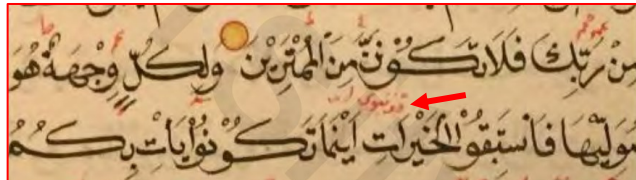 مِن رَّبِّكَ فَلَا تَكُونَنَّ مِنَ الْمُمْتَرِينَ وَلِكُلٍّ وِجْهَةٌ هُوَ
مُوَلِّيهَا فَاسْتَبِقُوا الْخَيْرَاتِ أَيْنَمَا تَكُونُوا يَأْتِ بِكُمُ